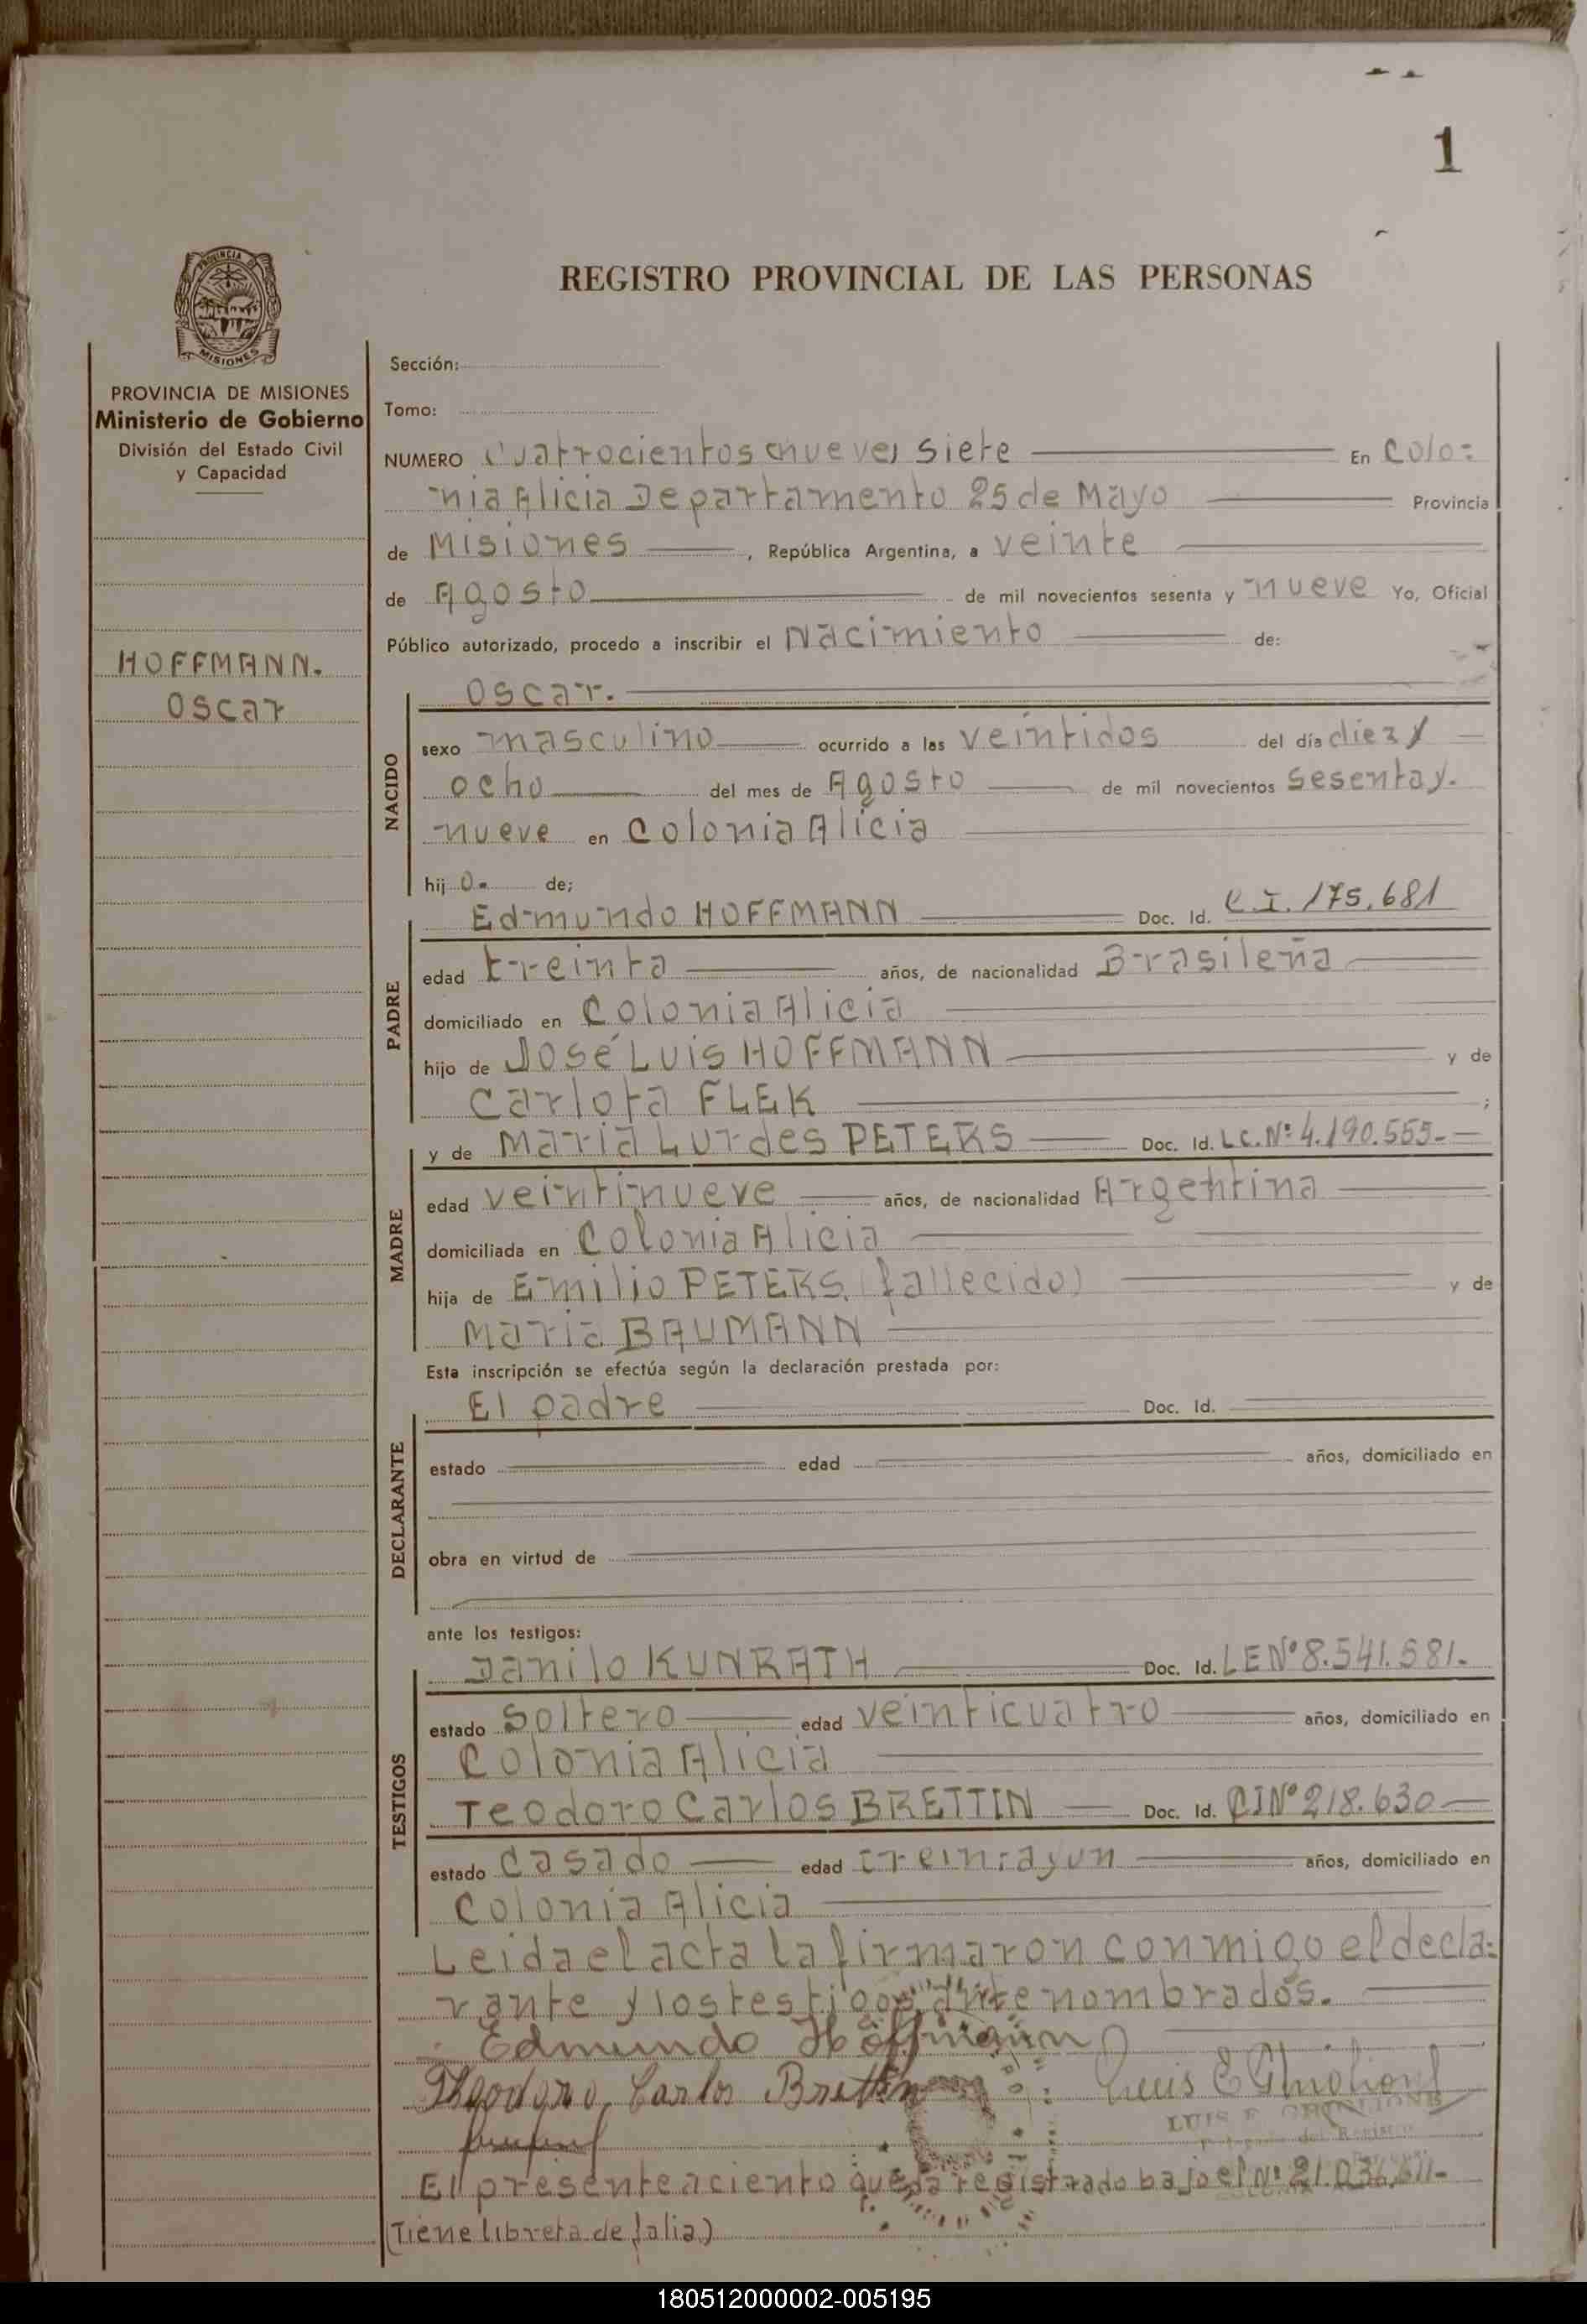 1
PROVINCIA DE
MISIONES
REGISTRO PROVINCIAL DE LAS PERSONAS
PROVINCIA DE MISIONES
Ministerio de Gobierno
División del Estado Civil
y Capacidad
HOFFMANN.
Oscar
Sección:
Tomo:
NUMERO Cuatrocientos nueve, siete En Colo=
nia Alicia Departamento 25 de Mayo Provincia
de Misiones , República Argentina, a veinte
de Agosto de mil novecientos sesenta y nueve Yo, Oficial
Público autorizado, procedo a inscribir el Nacimiento de:
Oscar.
NACIDO
sexo masculino ocurrido a las veintidos del día diez y
ocho del mes de Agosto de mil novecientos sesenta y.
nueve en Colonia Alicia
hij o. de;
PADRE
Edmundo HOFFMANN Doc. Id. C.I. 175.681
edad treinta años, de nacionalidad Brasileña
domiciliado en Colonia Alicia
hijo de José Luis HOFFMANN y de
Carlota FLEK ;
MADRE
y de Maria Lurdes PETERS Doc. Id. L.C.Nº 4.190.555-
edad veintinueve años, de nacionalidad Argentina
domiciliada en Colonia Alicia
hija de Emilio PETERS, (fallecido) y de
Maria BAUMANN
Esta inscripción se efectúa según la declaración prestada por:
DECLARANTE
El padre Doc. Id.
estado edad años, domiciliado en
obra en virtud de
ante los testigos:
TESTIGOS
Danilo KUNRATH Doc. Id. LE Nº 8.541.581.
estado Soltero edad veinticuatro años, domiciliado en
Colonia Alicia
Teodoro Carlos BRETTIN Doc. Id. CI Nº 218.630
estado Casado edad treintayun años, domiciliado en
Colonia Alicia
Leida el acta la firmaron conmigo el decla=
rante y los testigos ante nombrados.
Edmundo Hoffmann
Theodoro Carlos Brettin Luis E Ghiglione
LUIS E. GHIGLIONE
del Registro
El presente aciento queda registrado bajo el Nº 21.036.
(Tiene libreta de falia)
180512000002-005195